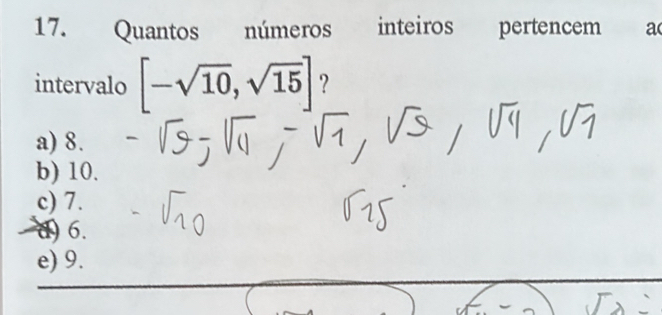 17. Quantos números inteiros pertencem ao
intervalo [-√10, √15] ?
a) 8.
b) 10.
c) 7.
d) 6.
e) 9.
-√9, -√4, -√1, √9, √4, √1
-√10 √15